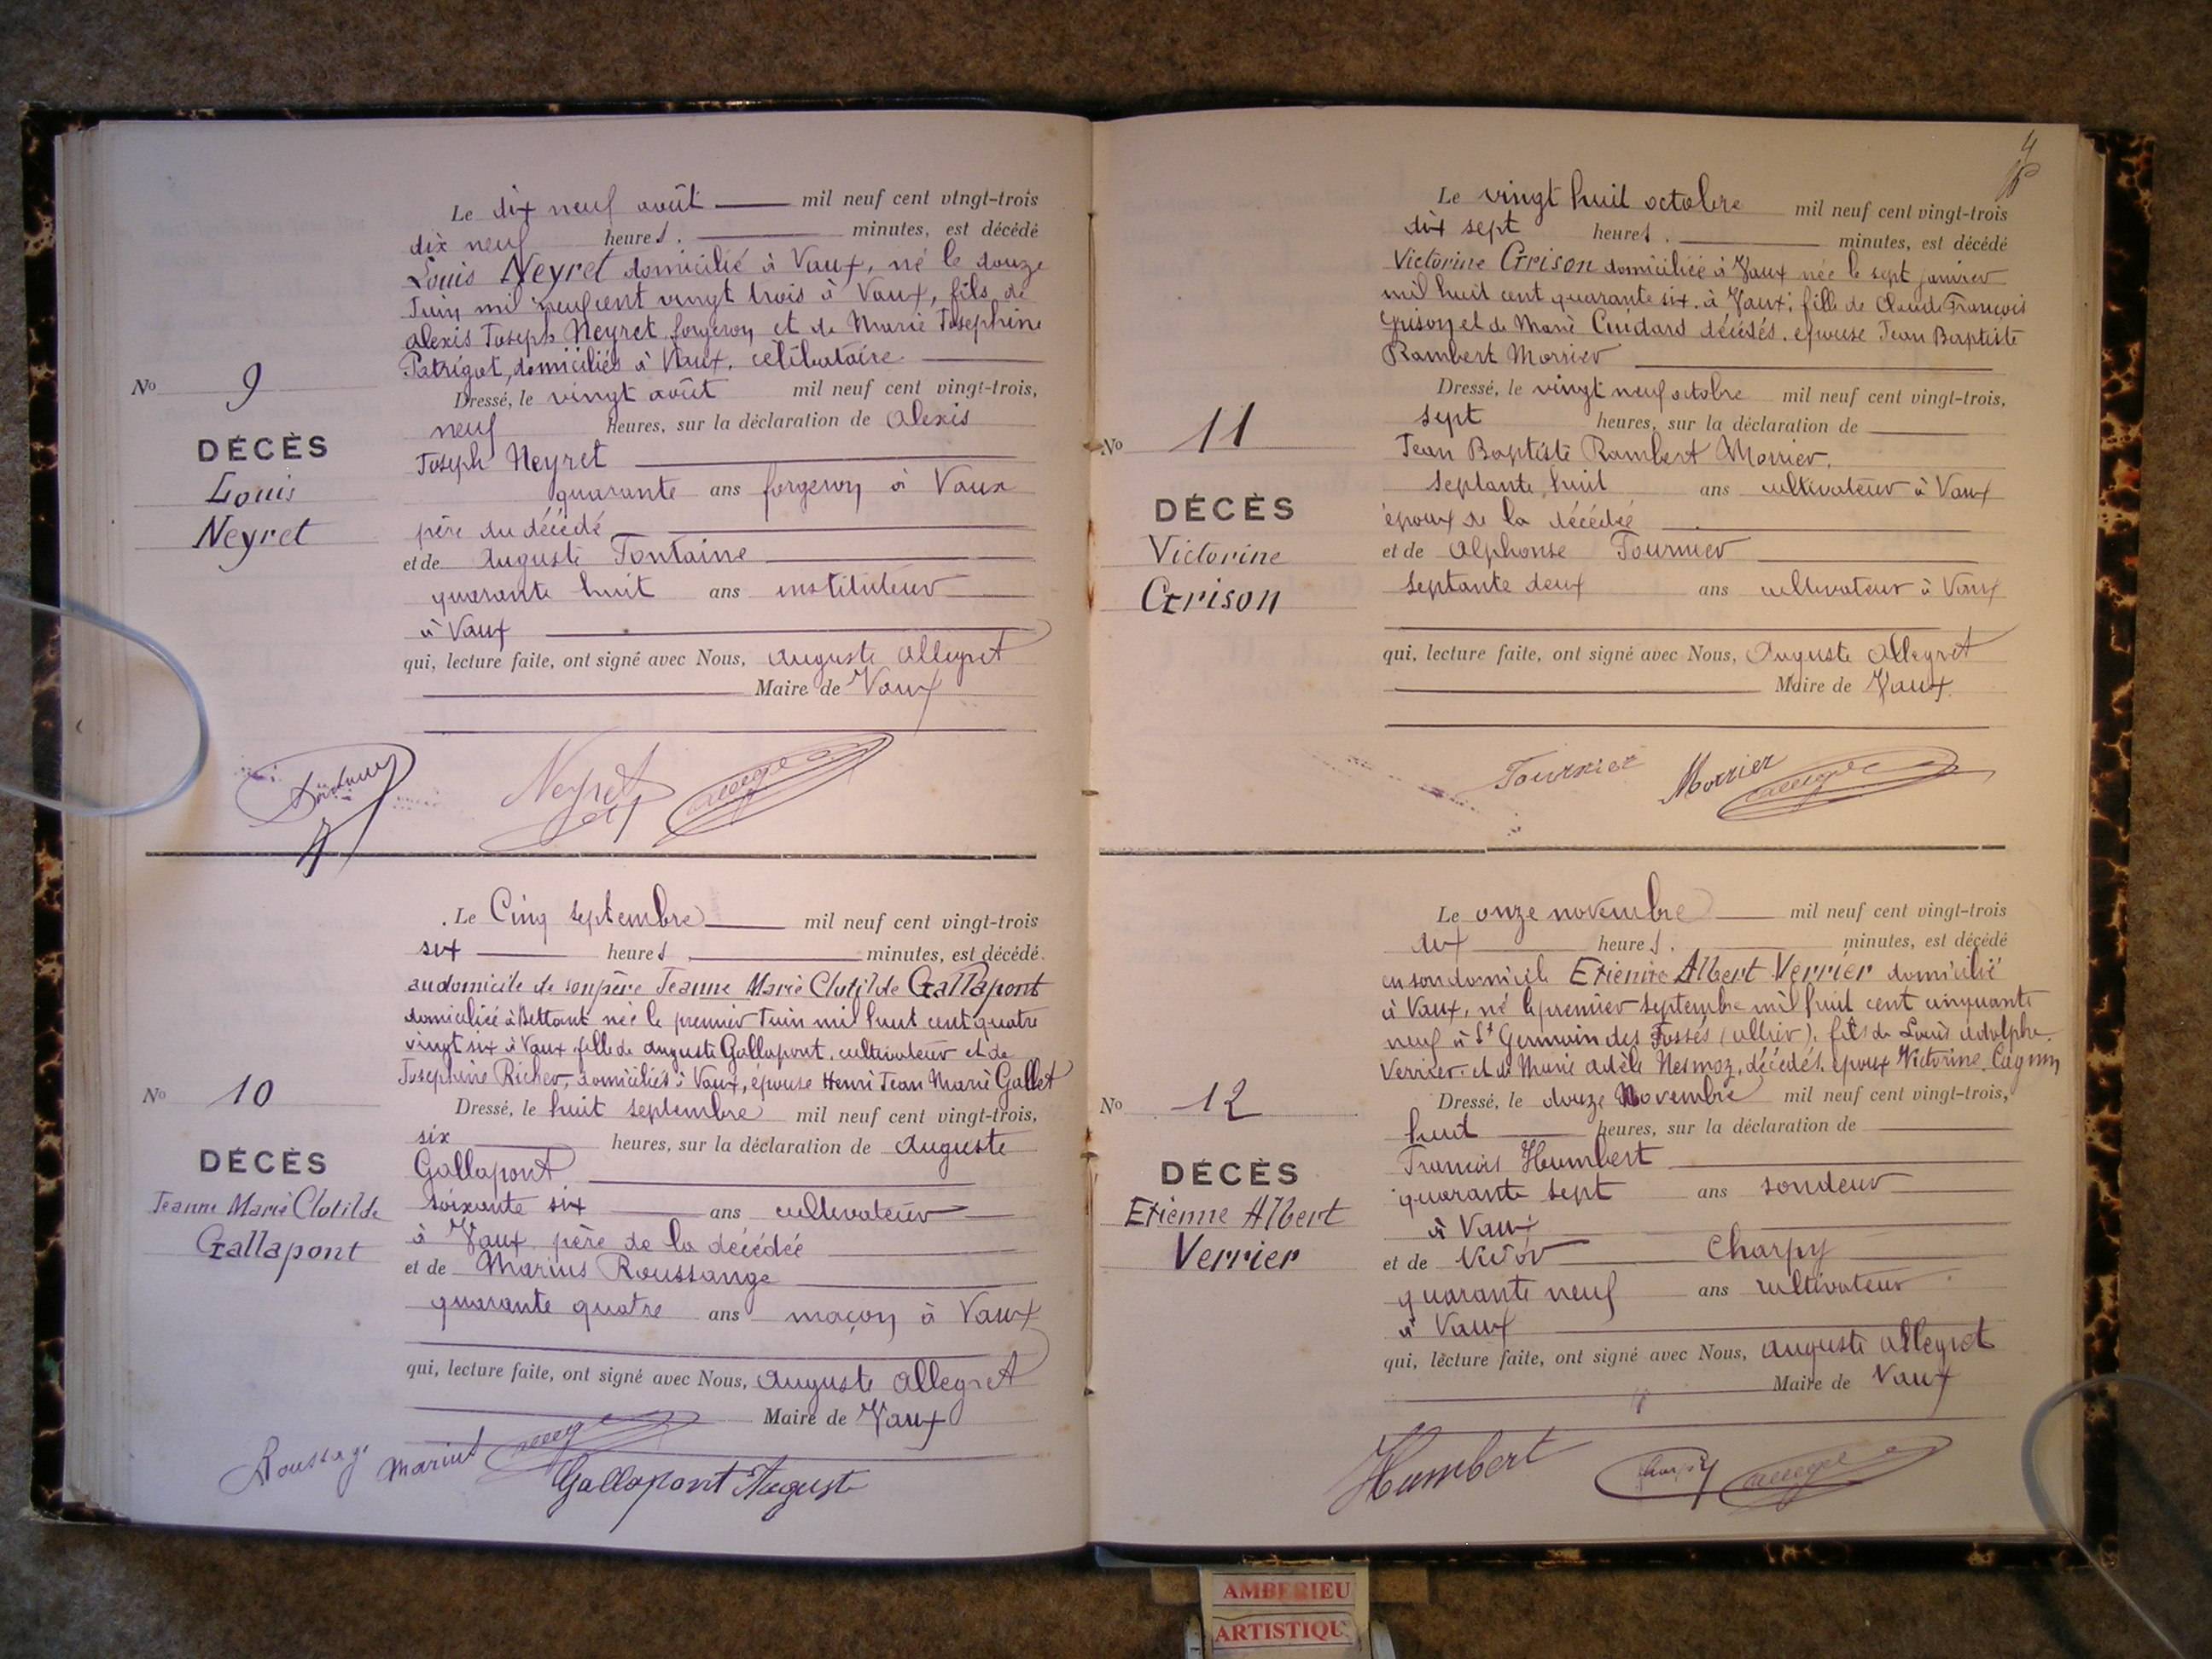 Le dix neuf août mil neuf cent vingt-trois
dix neuf heures. minutes, est décédé
Louis Neyret domicilié à Vaux, né le douze
Juin mil neuf cent vingt trois à Vaux, fils de
Alexis Joseph Neyret forgeron et de Marie Josephine
Patrigot, domiciliés à Vaux. célibataire.
No 9
DÉCÈS
Louis
Neyret
Dressé, le vingt août mil neuf cent vingt-trois,
neuf heures, sur la déclaration de Alexis
Joseph Neyret
quarante ans forgeron à Vaux
père du décédé
et de Auguste Fontaine
quarante huit ans instituteur
à Vaux
qui, lecture faite, ont signé avec Nous, Auguste Allegret
Maire de Vaux
Neyret
Le Cinq septembre mil neuf cent vingt-trois
six heures minutes, est décédé
au domicile de son père Jeanne Marie Clotilde Gallapont
domiciliée à Bettant née le premier Juin mil huit cent quatre
vingt six à Vaux fille de Auguste Gallapont, cultivateur et de
Josephine Richer, domiciliés à Vaux, épouse Henri Jean Marie Gallet
No 10
DÉCÈS
Jeanne Marie Clotilde
Gallapont
Dressé, le huit septembre mil neuf cent vingt-trois,
six heures, sur la déclaration de Auguste
Gallapont
soixante six ans cultivateur
à Vaux père de la décédée
et de Marius Roussange
quarante quatre ans maçon à Vaux
qui, lecture faite, ont signé avec Nous, Auguste Allegret
Maire de Vaux
Marius
Gallapont Auguste
4
Le vingt huit octobre mil neuf cent vingt-trois
dix sept heures. minutes, est décédé
Victorine Grison domiciliée à Vaux née le sept janvier
mil huit cent quarante six. à Vaux; fille de Claude François
Grison et de Marie Cuidard décédés. épouse Jean Baptiste
Rambert Morrier
No 11
DÉCÈS
Victorine
Grison
Dressé, le vingt neuf octobre mil neuf cent vingt-trois,
sept heures, sur la déclaration de
Jean Baptiste Rambert Morrier.
septante huit ans cultivateur à Vaux
époux de la décédée
et de Alphonse Tournier
septante deux ans cultivateur à Vaux
qui, lecture faite, ont signé avec Nous, Auguste Allegret
Maire de Vaux
Tournier Morrier
Le onze novembre mil neuf cent vingt-trois
heures. minutes, est décédé
en son domicile Etienne Albert Verrier domicilié
à Vaux, né le premier septembre mil huit cent cinquante
neuf à St Germain des Fossés (allier). fils de Louis Adolphe
Verrier. et de Marie Adèle Nesmoz, décédés, époux Victorine
No 12
DÉCÈS
Etienne Albert
Verrier
Dressé, le douze Novembre mil neuf cent vingt-trois,
huit heures, sur la déclaration de
François Humbert
quarante sept ans sondeur
à Vaux
et de Victor Charpy
quarante neuf ans cultivateur
à Vaux
qui, lecture faite, ont signé avec Nous, Auguste Allegret
Maire de Vaux
Humbert Charpy
AMBERIEU
ARTISTIQU